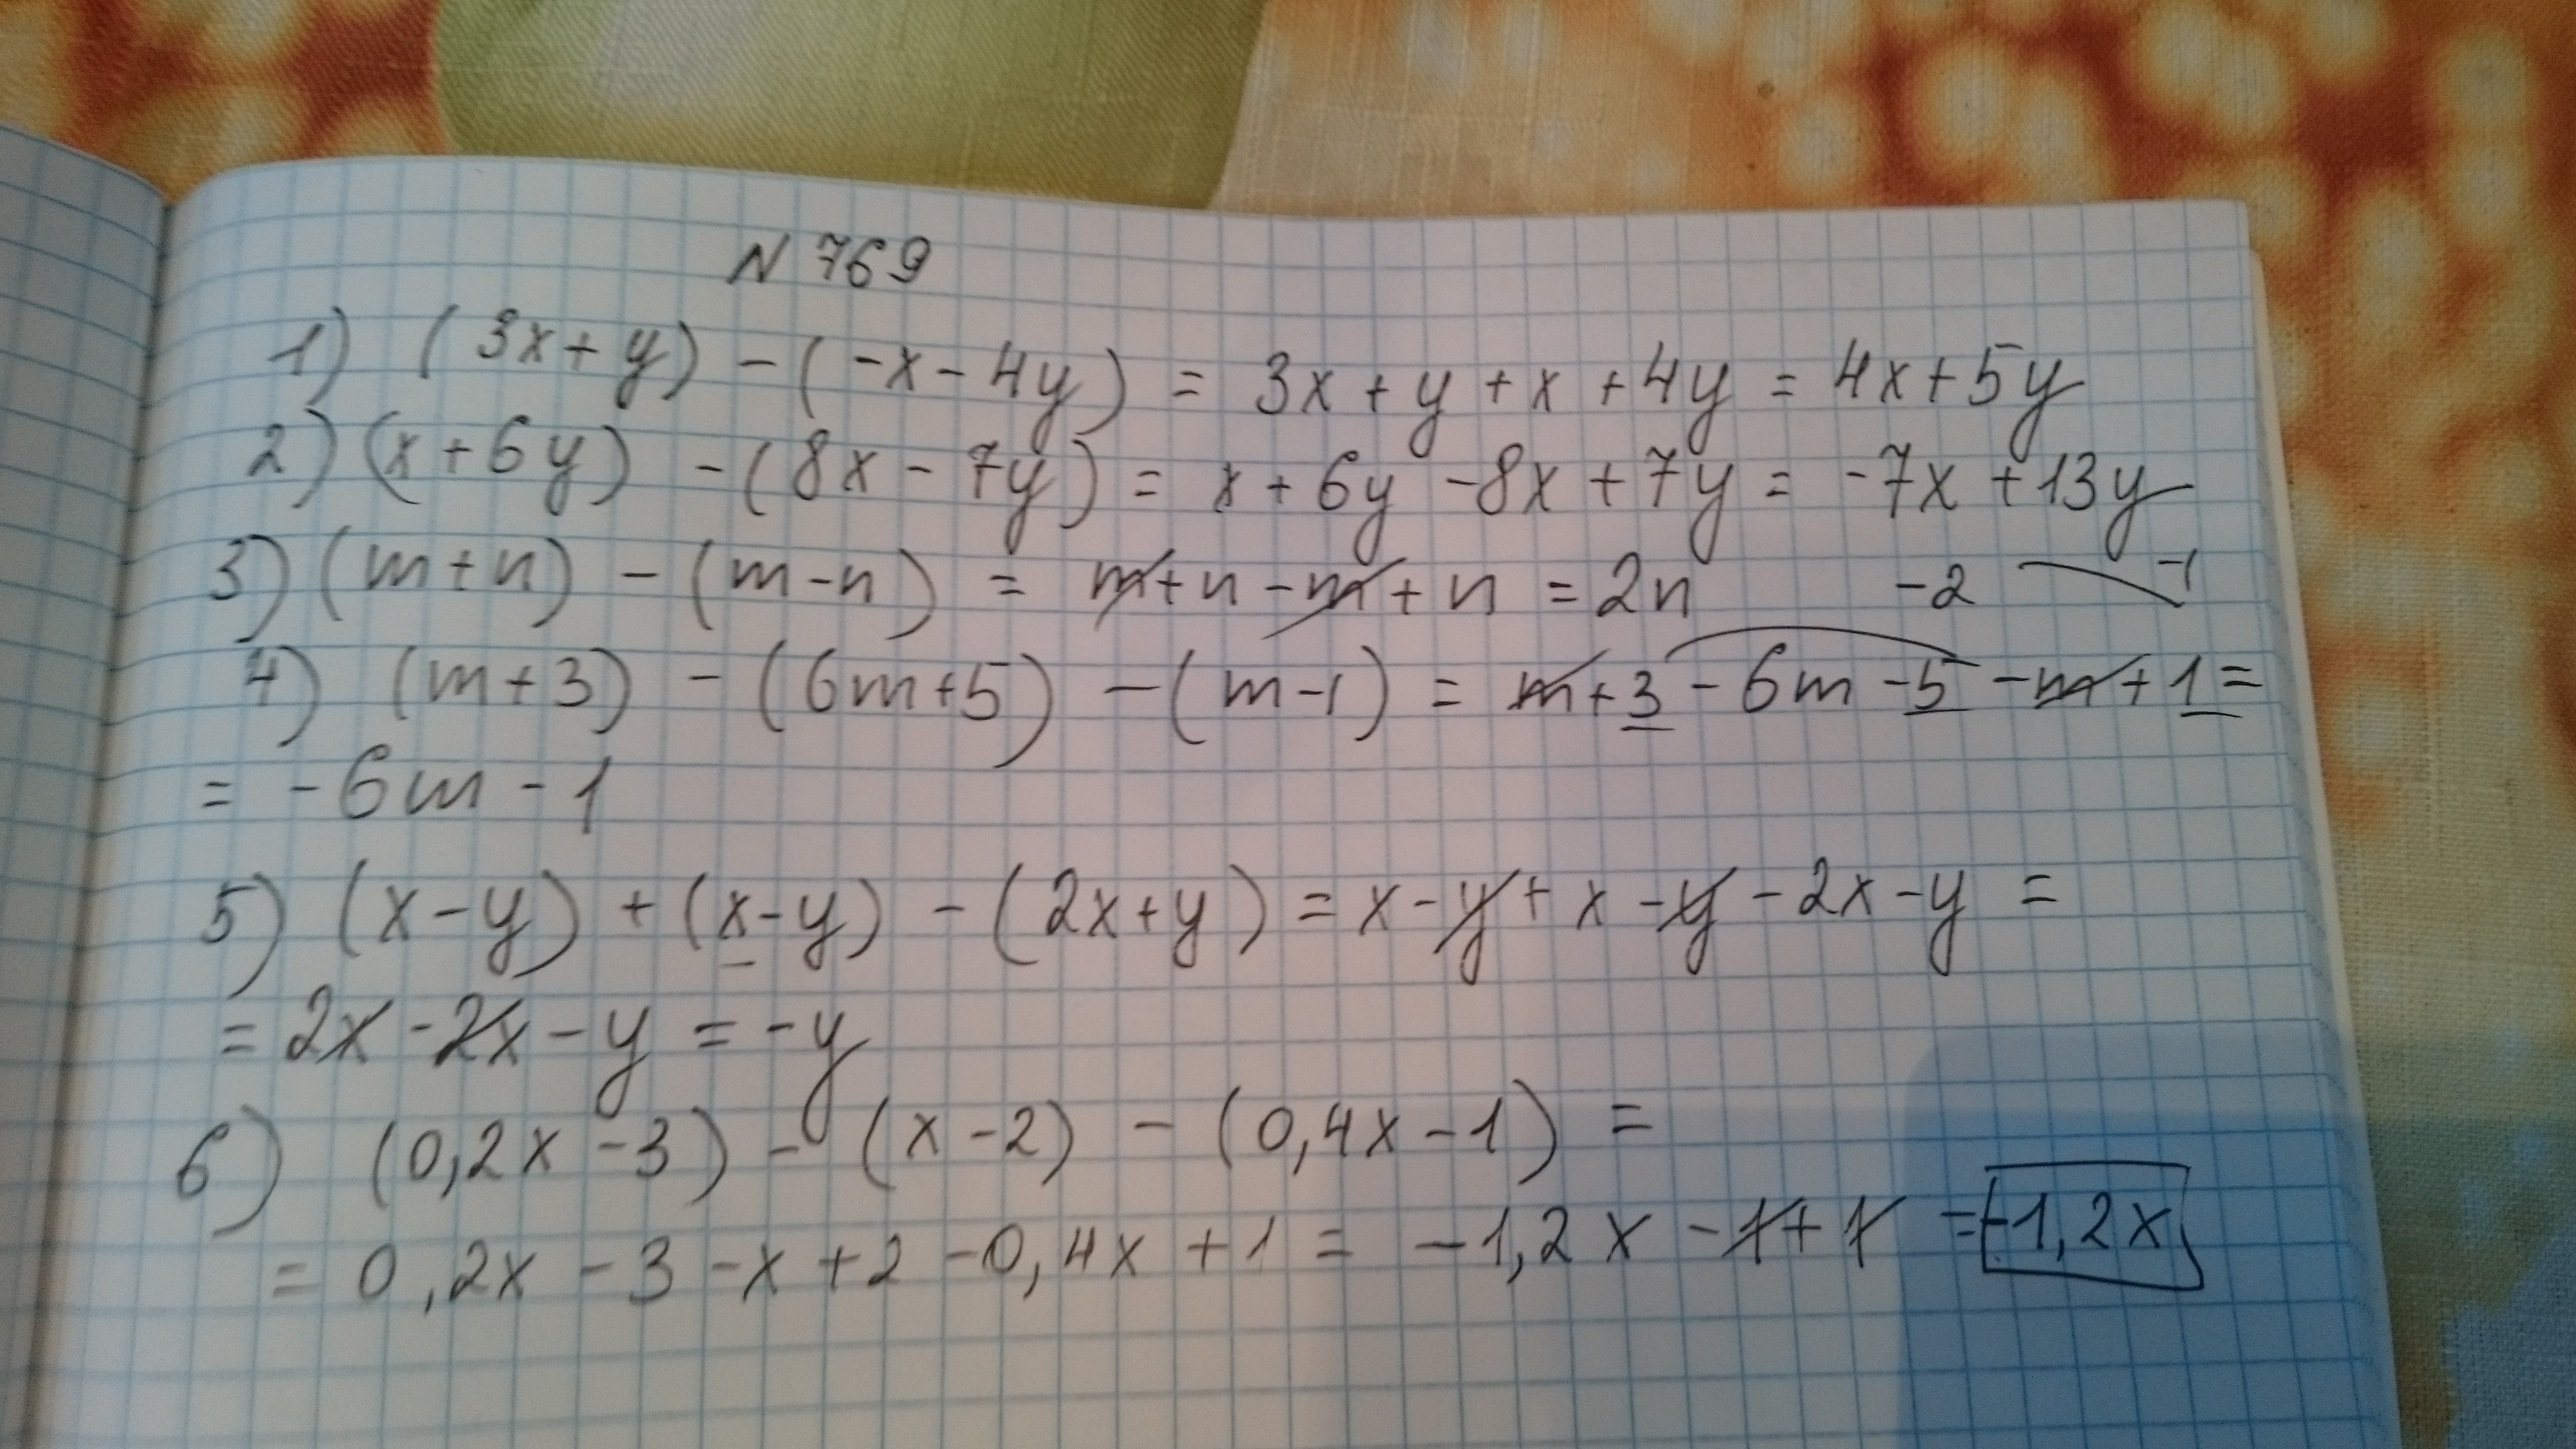 N 769
1) (3x+y) - (-x-4y) = 3x+y+x+4y = 4x+5y
2) (x+6y) - (8x-7y) = x+6y-8x+7y = -7x+13y
3) (m+n) - (m-n) = m+n-m+n = 2n
-2 -1
4) (m+3) - (6m+5) - (m-1) = m+3-6m-5-m+1 =
= -6m-1
5) (x-y) + (x-y) - (2x+y) = x-y+x-y-2x-y =
= 2x-2x-y = -y
6) (0,2x-3) - (x-2) - (0,4x-1) =
= 0,2x-3-x+2-0,4x+1 = -1,2x-1+1 = -1,2x